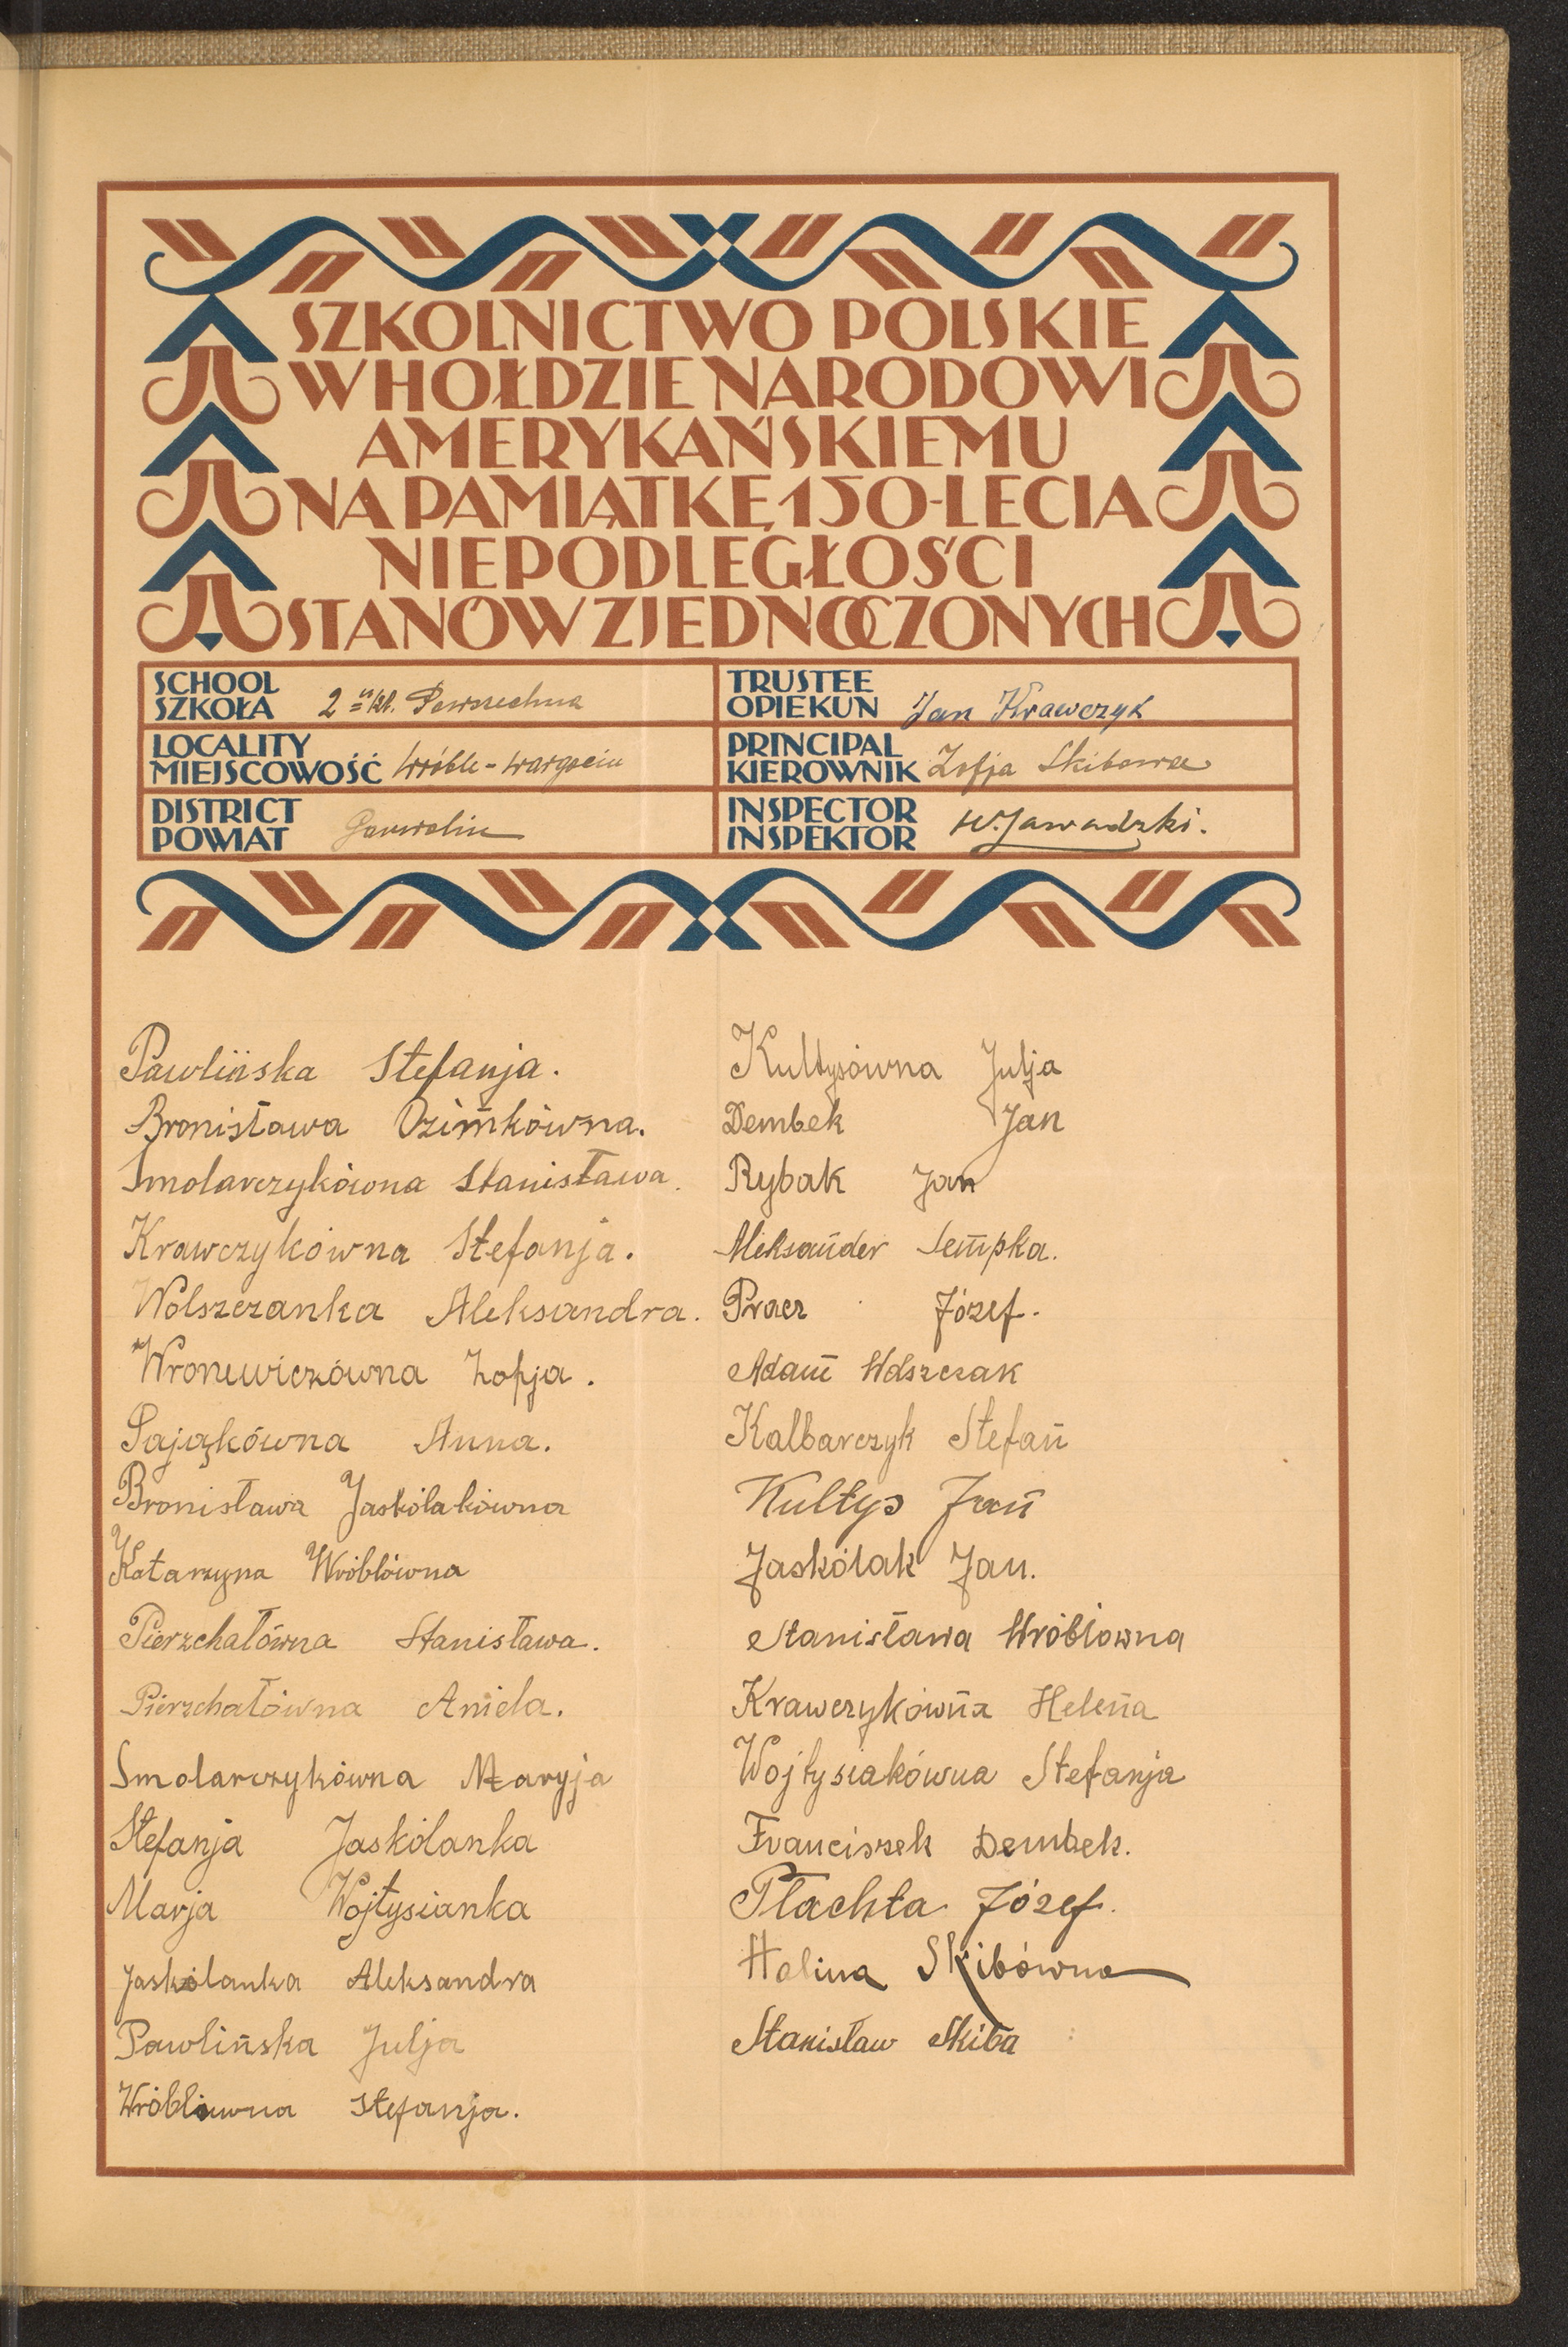 SZKOLNICTWO POLSKIE
W HOŁDZIE NARODOWI
AMERYKAŃSKIEMU
NA PAMIĄTKĘ 150-LECIA
NIEPODLEGŁOŚCI
STANÓW ZJEDNOCZONYCH
SCHOOL
SZKOŁA 2 kl. Powszechna
LOCALITY
MIEJSCOWOŚĆ Wróble-Wargocin
DISTRICT
POWIAT Garwolin
TRUSTEE
OPIEKUN Jan Krawczyk
PRINCIPAL
KIEROWNIK Zofja Skibowa
INSPECTOR
INSPEKTOR W. Zawadzki.
Pawlińska Stefanja.
Bronisława Ozimkówna.
Smolarczykówna Stanisława.
Krawczykówna Stefanja.
Wolszczanka Aleksandra.
Wronewiczówna Zofja.
Pająkówna Anna.
Bronisława Jaskólakówna
Katarzyna Wróblówna
Pierzchałówna Stanisława.
Pierzchałówna Aniela.
Smolarczykówna Maryja
Stefanja Jaskólanka
Marja Wojtysianka
Jaskólanka Aleksandra
Pawlińska Julja
Wróblówna Stefanja.
Kultysówna Julja
Dembek Jan
Rybak Jan
Aleksander Sempka.
Pracz Józef.
Adam Wolszczak
Kalbarczyk Stefan
Kultys Jan
Jaskólak Jan.
Stanisława Wróblowna
Krawczykówna Helena
Wojtysiakówna Stefanja
Franciszek Dembek.
Płachta Józef.
Halina Skibówna
Stanisław Skiba